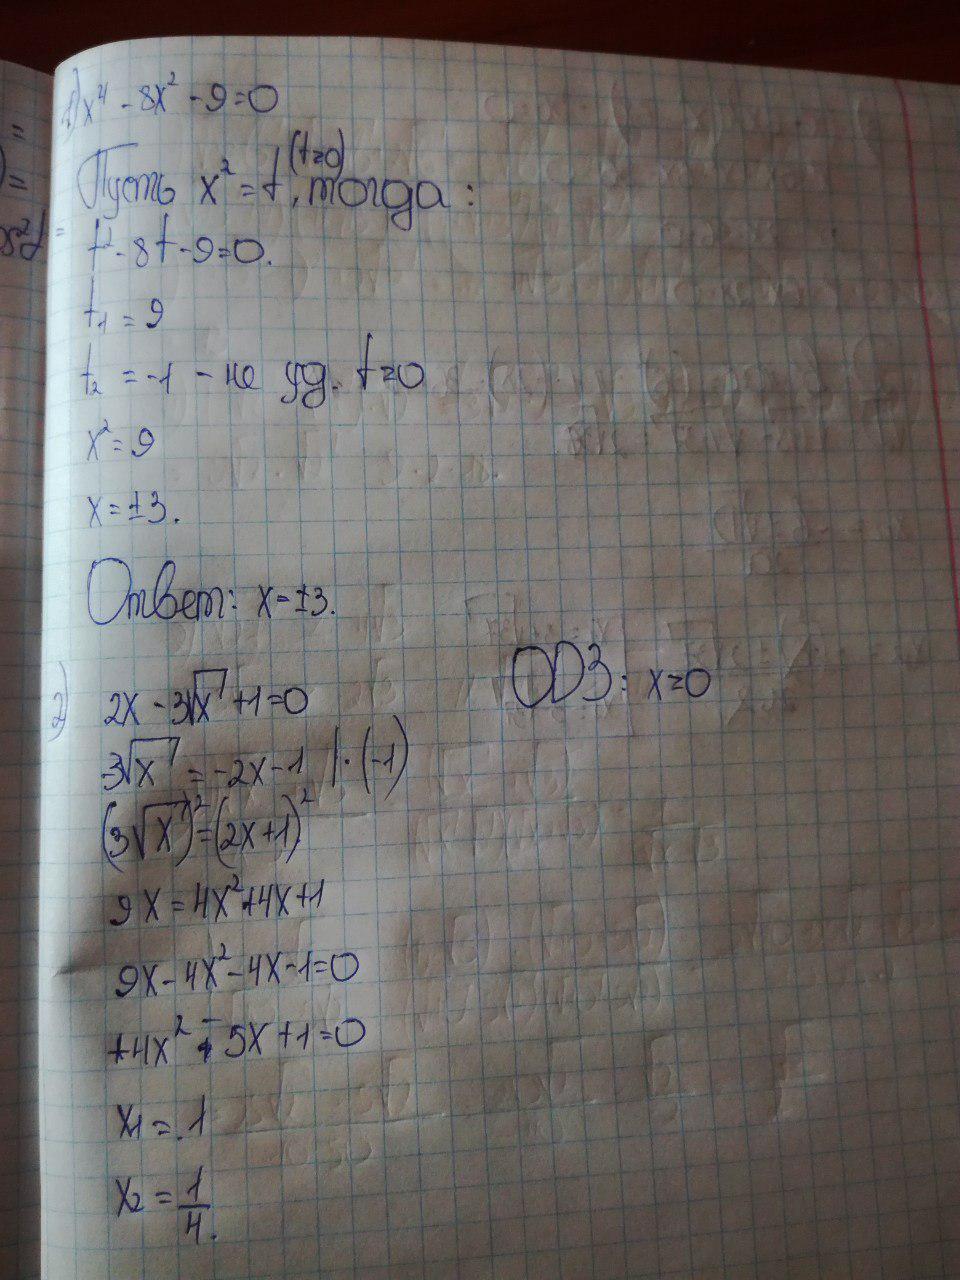 1) x⁴ - 8x² - 9 = 0
Пусть x² = t (t≥0), тогда:
t² - 8t - 9 = 0.
t₁ = 9
t₂ = -1 - не уд. t≥0
x² = 9
x = ±3.
Ответ: x = ±3.
2) 2x - 3√x + 1 = 0 ОДЗ: x≥0
-3√x = -2x - 1 | · (-1)
(3√x)² = (2x+1)²
9x = 4x² + 4x + 1
9x - 4x² - 4x - 1 = 0
+4x² - 5x + 1 = 0
x₁ = 1
x₂ = 1/4.